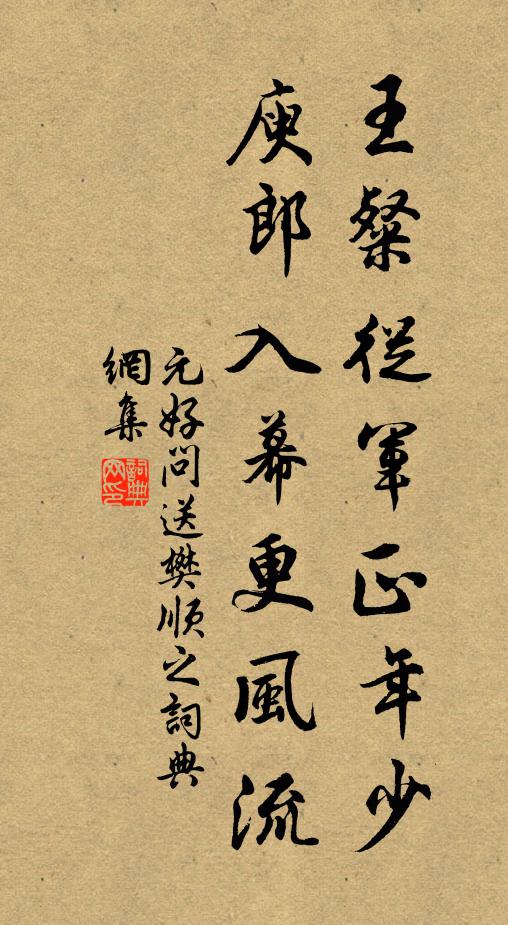 王粲從軍正年少
庾郎入幕更風流
元好問送樊順之詞典
網集
詞典網印